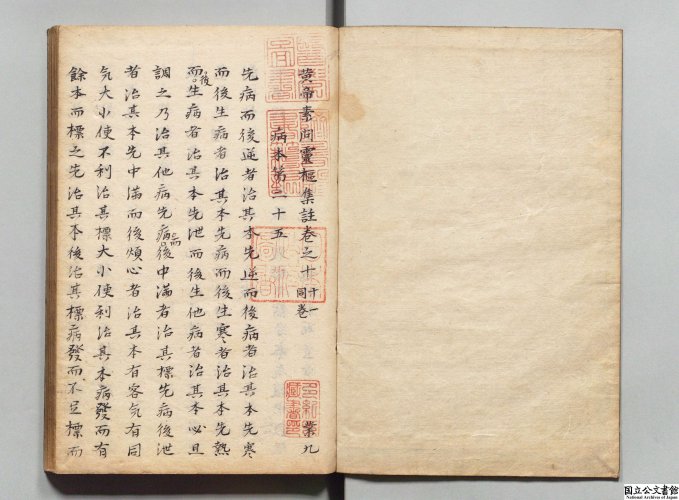 黄帝素問靈樞集註卷之十 十一同卷 業九
病本第二十五
先病而後逆者治其本先逆而後病者治其本先寒
而後生病者治其本先病而後生寒者治其本先熱
而後生病者治其本先泄而後生他病者治其本必且
調之乃治其他病先病而後中滿者治其標先病後泄
者治其本先中滿而後煩心者治其本有客気有同
気大小便不利治其標大小便利治其本病發而有
餘本而標之先治其本後治其標病發而不足標而
国立公文書館
National Archives of Japan